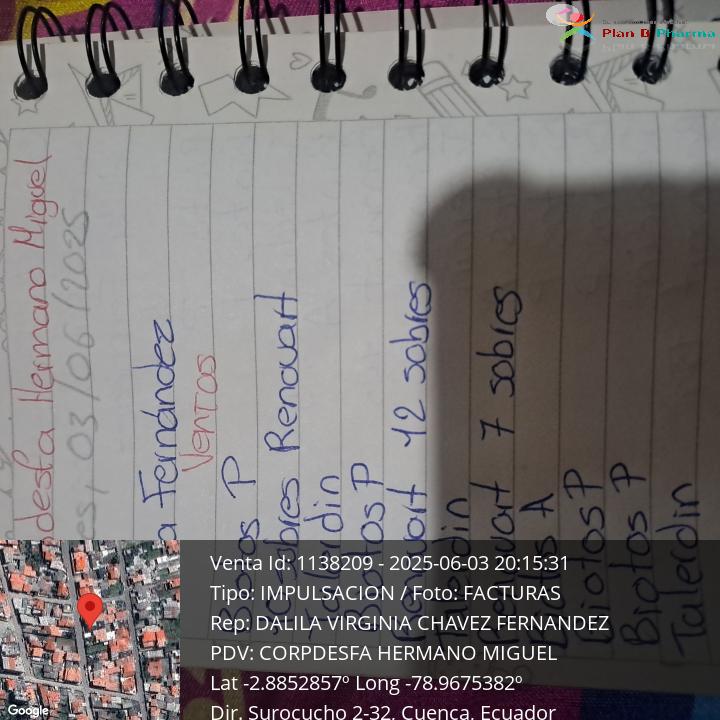 Plan B Pharma
desfa Hermano Miguel
es, 03/06/2025
a Fernández
Ventas
P
sobres Renovart
Biotos P
Renovart 12 sobres
Renovart 7 sobres
A
Biotos P
Biotos P
Talerdin
Venta Id: 1138209 - 2025-06-03 20:15:31
Tipo: IMPULSACION / Foto: FACTURAS
Rep: DALILA VIRGINIA CHAVEZ FERNANDEZ
PDV: CORPDESFA HERMANO MIGUEL
Lat -2.8852857º Long -78.9675382º
Dir. Surocucho 2-32, Cuenca, Ecuador
Google